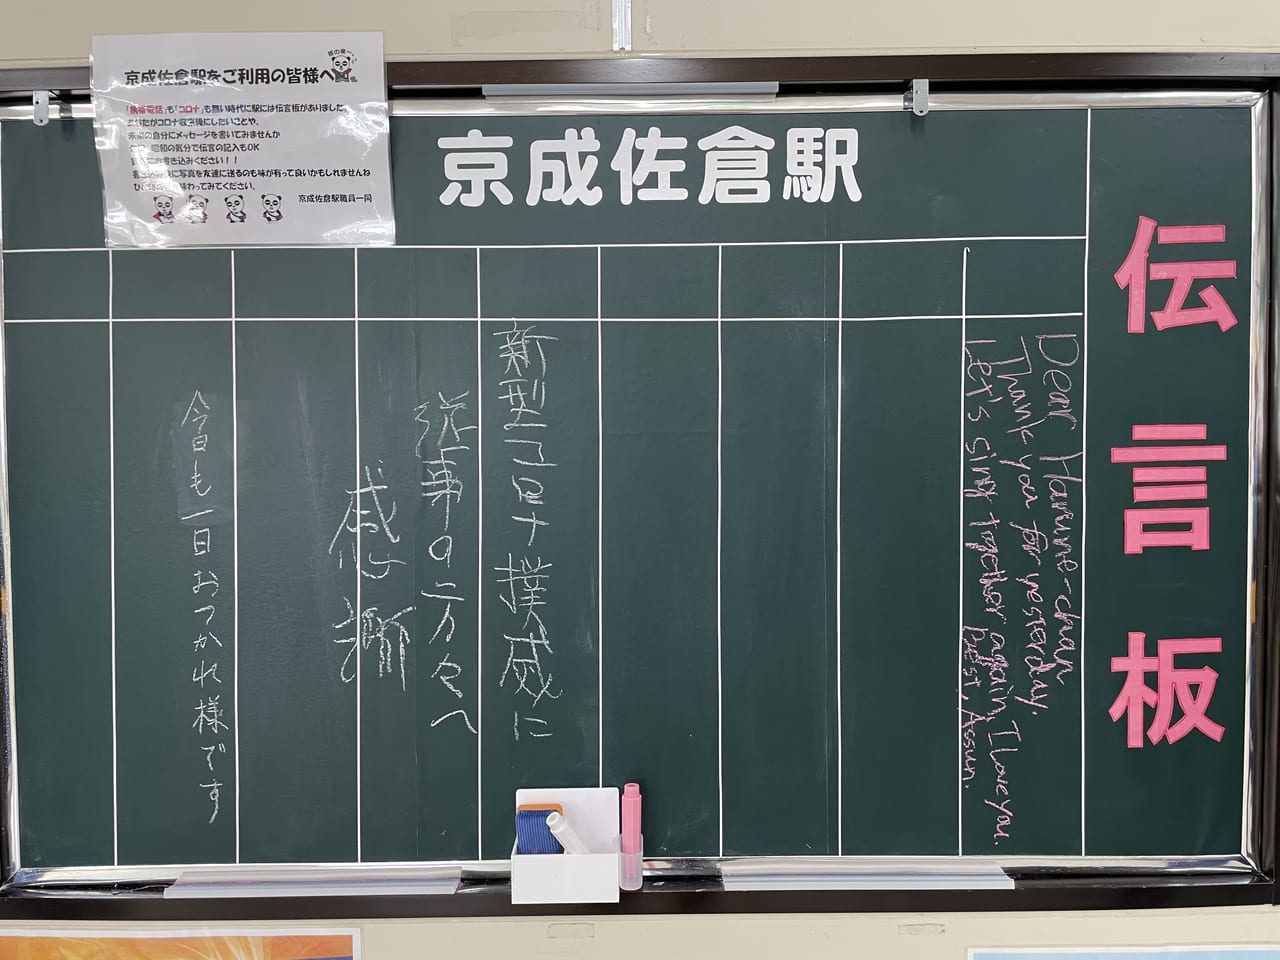 京成佐倉駅をご利用の皆様へ
「携帯電話」も「コロナ」も無い時代に駅には伝言板がありました。
コロナ収束後にしたいことや、
未来の自分にメッセージを書いてみませんか
昭和の気分で伝言の記入もOK
書き込みください！！
に写真を友達に送るのも味が有って良いかもしれませんね
わってみてください。
京成佐倉駅職員一同
京成佐倉駅
伝言板
Dear Harune-chan
Thank you for yesterday.
Let's sing together again, I love you.
Best, Assun.
新型コロナ撲滅に
従事の方々へ
感謝
今日も一日おつかれ様です